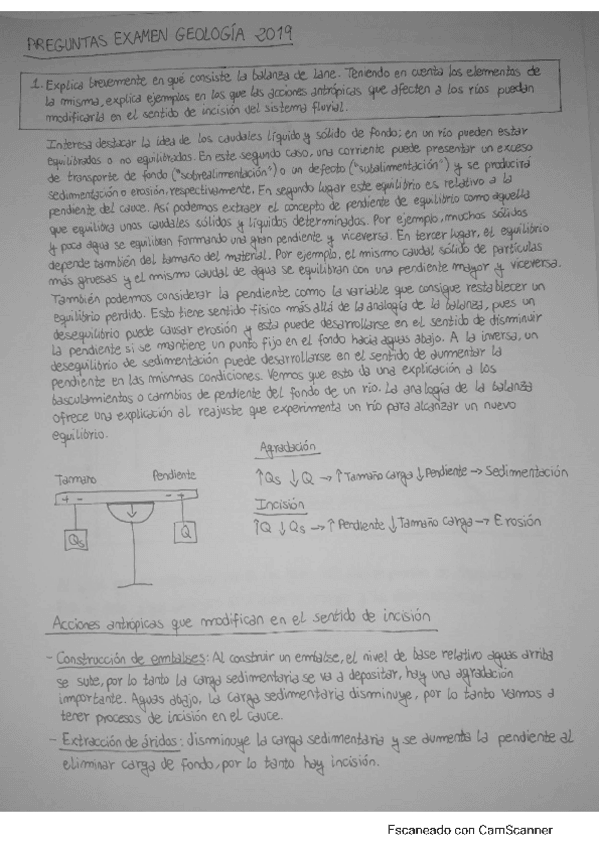 PREGUNTAS EXAMEN GEOLOGÍA 2019
1. Explica brevemente en qué consiste la balanza de Lane. Teniendo en cuenta los elementos de
la misma, explica ejemplos en los que las acciones antrópicas que afecten a los ríos puedan
modificarla en el sentido de incisión del sistema fluvial.
Interesa destacar la idea de los caudales líquido y sólido de fondo; en un río pueden estar
equilibrados o no equilibrados. En este segundo caso, una corriente puede presentar un exceso
de transporte de fondo ("sobrealimentación") o un defecto ("subalimentación") y se producirá
sedimentación o erosión, respectivamente. En segundo lugar este equilibrio es relativo a la
pendiente del cauce. Así podemos extraer el concepto de pendiente de equilibrio como aquella
que equilibra unos caudales sólidos y líquidos determinados. Por ejemplo, muchos sólidos
y poca agua se equilibran formando una gran pendiente y viceversa. En tercer lugar, el equilibrio
depende también del tamaño del material. Por ejemplo, el mismo caudal sólido de partículas
más gruesas y el mismo caudal de agua se equilibran con una pendiente mayor y viceversa.
También podemos considerar la pendiente como la variable que consigue restablecer un
equilibrio perdido. Esto tiene sentido físico más allá de la analogía de la balanza, pues un
desequilibrio puede causar erosión y esta puede desarrollarse en el sentido de disminuir
la pendiente si se mantiene un punto fijo en el fondo hacia aguas abajo. A la inversa, un
desequilibrio de sedimentación puede desarrollarse en el sentido de aumentar la
pendiente en las mismas condiciones. Vemos que esto da una explicación a los
basculamientos o cambios de pendiente del fondo de un río. La analogía de la balanza
ofrece una explicación al reajuste que experimenta un río para alcanzar un nuevo
equilibrio.
Agradación
Tamaño Pendiente
↑Qs ↓Q → ↑Tamaño carga ↓Pendiente → Sedimentación
+ - - +
Incisión
Qs Q
↑Q ↓Qs → ↑Pendiente ↓Tamaño carga → Erosión
Acciones antrópicas que modifican en el sentido de incisión
- Construcción de embalses: Al construir un embalse, el nivel de base relativo aguas arriba
se sube, por lo tanto la carga sedimentaria se va a depositar, hay una agradación
importante. Aguas abajo, la carga sedimentaria disminuye, por lo tanto vamos a
tener procesos de incisión en el cauce.
- Extracción de áridos: disminuye la carga sedimentaria y se aumenta la pendiente al
eliminar carga de fondo, por lo tanto hay incisión.
Escaneado con CamScanner